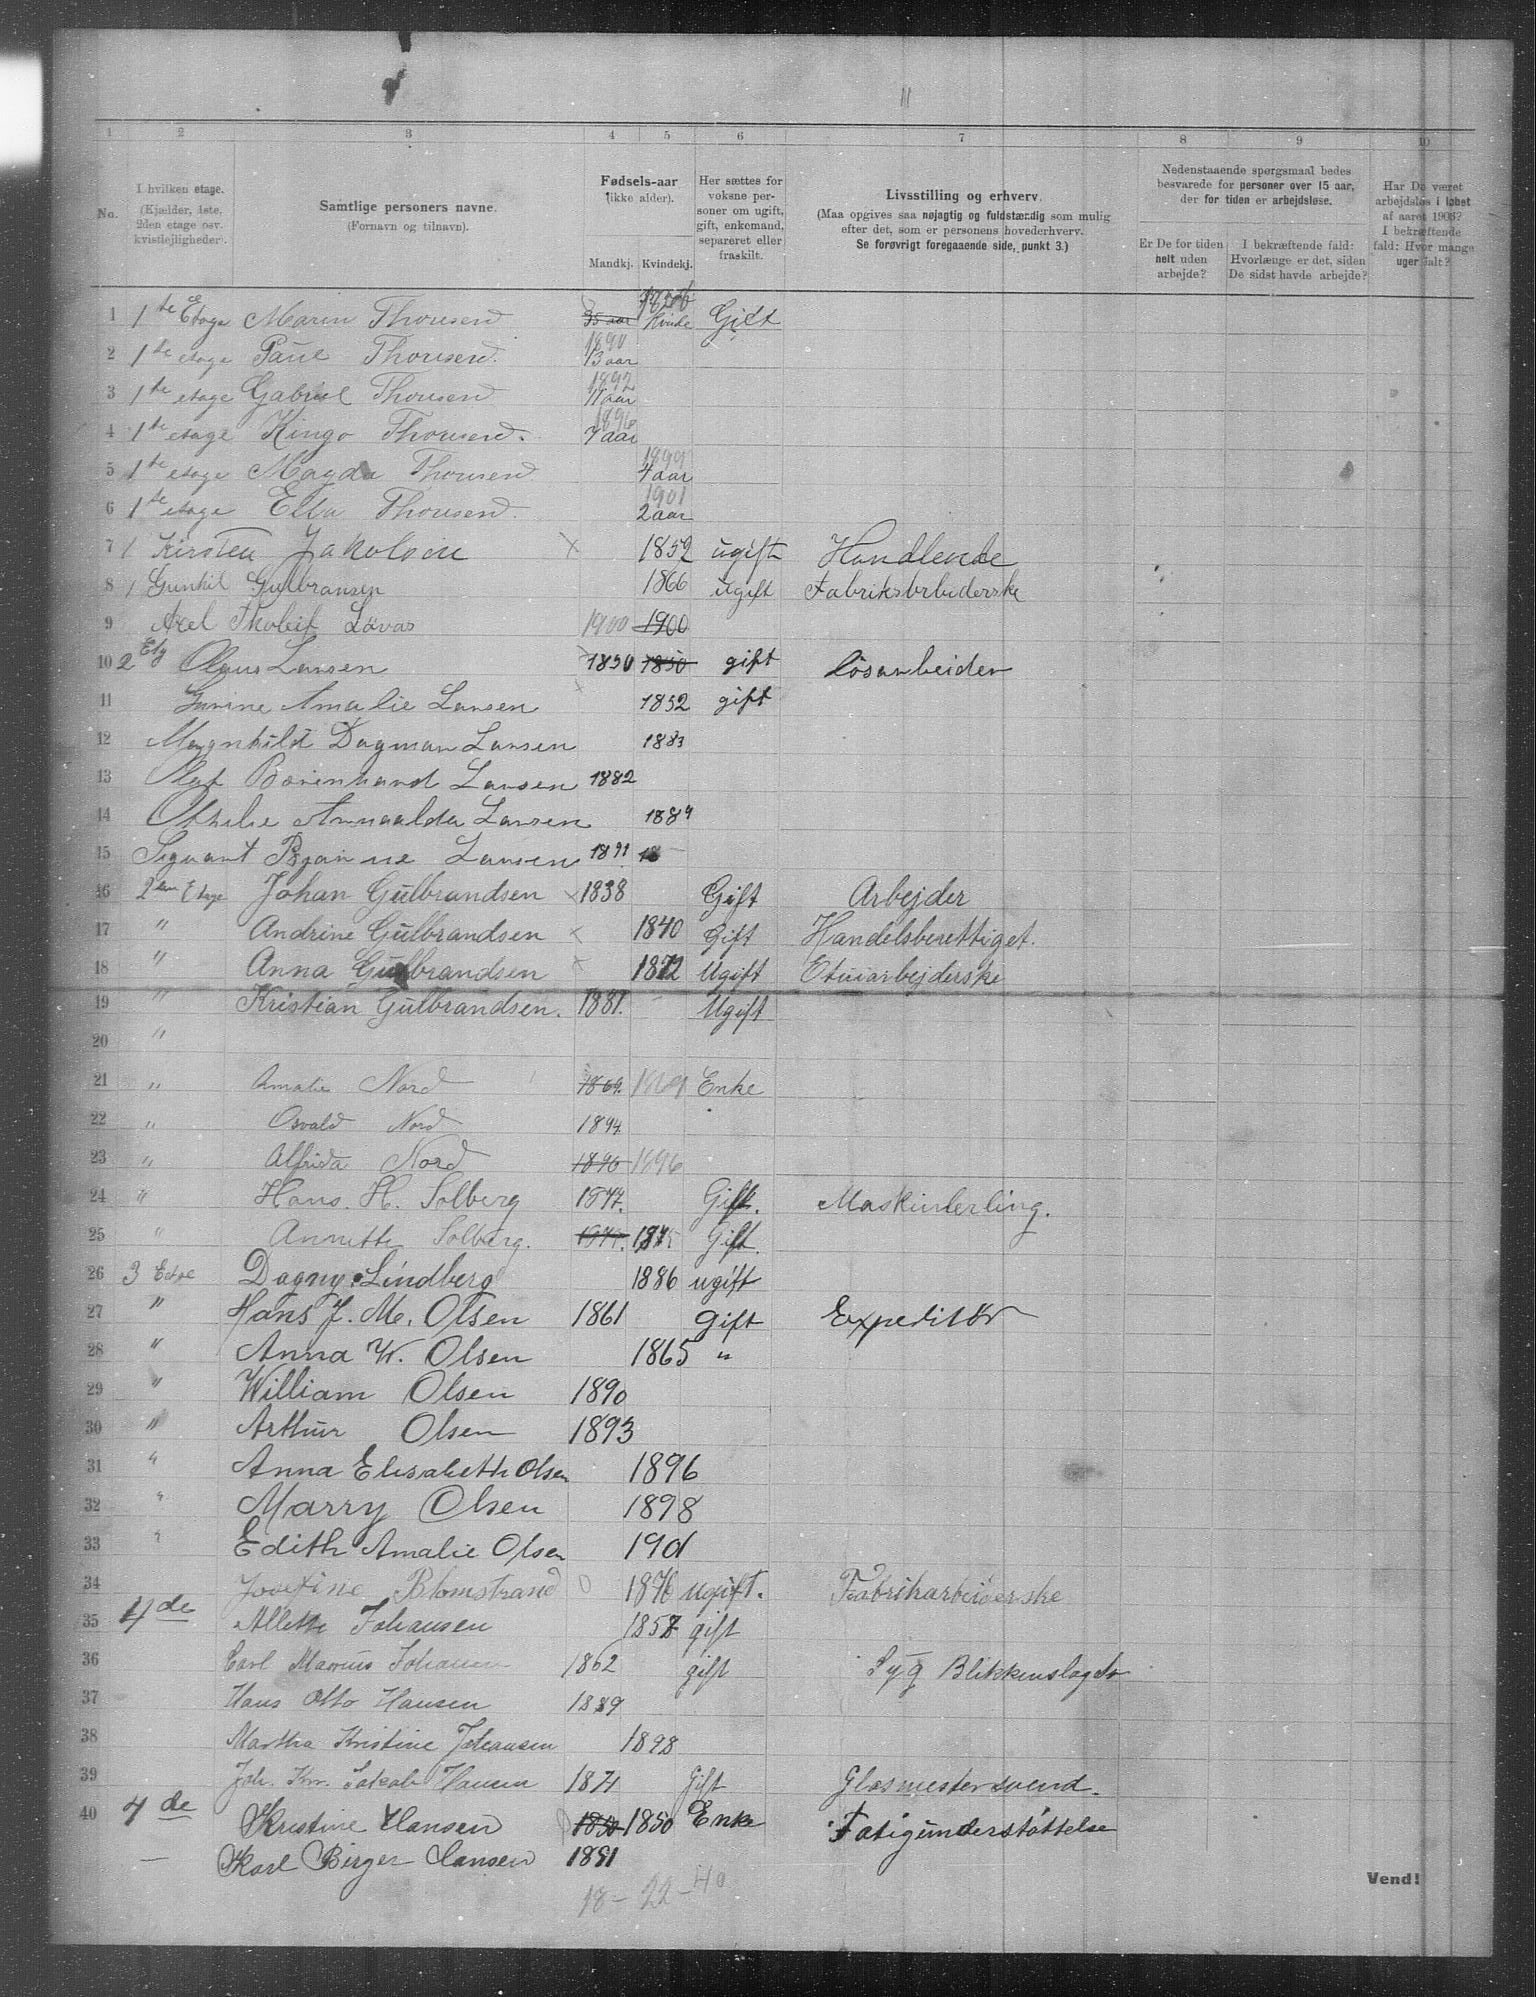 11
1 2 3 4 5 6 7 8 9 10
No.
I hvilken etage.
(Kjælder, 1ste, 2den etage osv. kvistleiligheder).
Samtlige personers navne.
(Fornavn og tilnavn).
Fødsels-aar
(ikke alder).
Mandkj. Kvindekj.
Her sættes for voksne personer om ugift, gift, enkemand, separeret eller fraskilt.
Livsstilling og erhverv.
(Maa opgives saa nøjagtig og fuldstændig som mulig efter det, som er personens hovederhverv.
Se forøvrigt foregaaende side, punkt 3.)
Nedenstaaende spørgsmaal bedes besvarede for personer over 15 aar, der for tiden er arbejdsløse.
Er De for tiden helt uden arbejde?
I bekræftende fald: Hvorlænge er det, siden De sidst havde arbejde?
Har De været arbejdsløs i løbet af aaret 1903? I bekræftende fald: Hvor mange uger ialt?
1 1ste Etage Maren Thousend 35 aar Kvinde Gift
2 1ste etage Paul Thousend. 1890 13 aar
3 1ste etage Gabriel Thousend 1892 11 aar
4 1ste etage Kingo Thousend. 1896 7 aar
5 1ste etage Magda Thousend 1899 4 aar
6 1ste etage Ella Thousend. 1901 2 aar
7 1 Kirsten Jakobsen x 1852 ugift Handlende
8 1 Gunhil Gulbransen 1866 ugift Fabrikarbiderske
9 Axel Tholeif Løvas 1900 1900
10 2 Etg Olaus Larsen 1850 1850 gift løsarbeider
11 Gurine Amalie Larsen 1852 gift
12 Magnhild Dagmar Larsen 1883
13 Olaf Berenhard Larsen 1882
14 Othilie Annalda Larsen 1884
15 Sigvart Bjarne Larsen 1891 18
16 2den Etage Johan Gulbrandsen x 1838 Gift Arbejder
17 " Andrine Gulbrandsen x 1840 Gift Handelsberettiget.
18 " Anna Gulbrandsen x 1872 Ugift Etuiarbejderske
19 " Kristian Gulbrandsen. 1881. " Ugift
20 "
21 " Amalie Nord 1869. 1869 Enke
22 " Osvald Nord 1894.
23 " Alfrida Nord 1896 1896
24 " Hans. H. Solberg 1877. Gift. Maskinlerling.
25 " Annette Solberg. 1875. 1875 Gift.
26 3 Etage Dagny Lindberg 1886 ugift
27 " Hans J. M. Olsen 1861 gift Expeditør
28 " Anna W. Olsen 1865 "
29 " William Olsen 1890
30 " Arthur Olsen 1893
31 " Anna Elisabeth Olsen 1896
32 " Marry Olsen 1898
33 " Edith Amalie Olsen 1901
34 Josefine Blomstrand 0 1876 ugift. Fabrikarbeiderske
35 4de Allette Johansen 1857 gift
36 Carl Marius Johansen 1862 gift Syg Blikkenslager
37 Hans Otto Hansen 1889
38 Martha Kristine Johansen 1898
39 Joh. Kr. Jakob Hansen 1871 Gift Glasmestersvend.
40 4de Kristine Hansen 1850 1850 Enke Fatigunderstøttelse
— Karl Birger Hansen 1891
18 – 22 – 40
Vend!